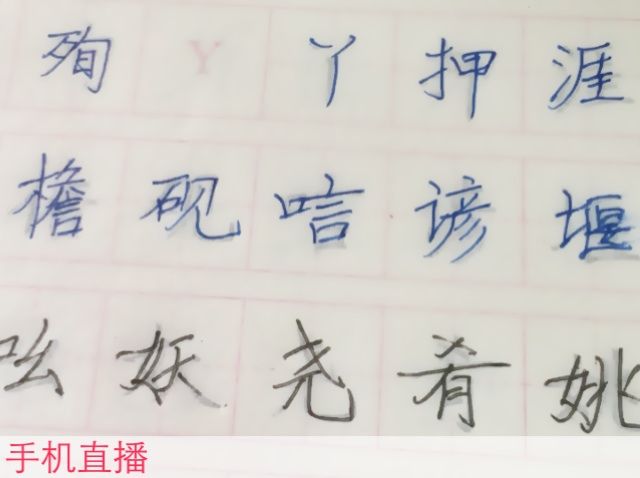 殉 Y 丫 押 涯
檐 砚 唁 谚 堰
吆 妖 尧 肴 姚
手机直播